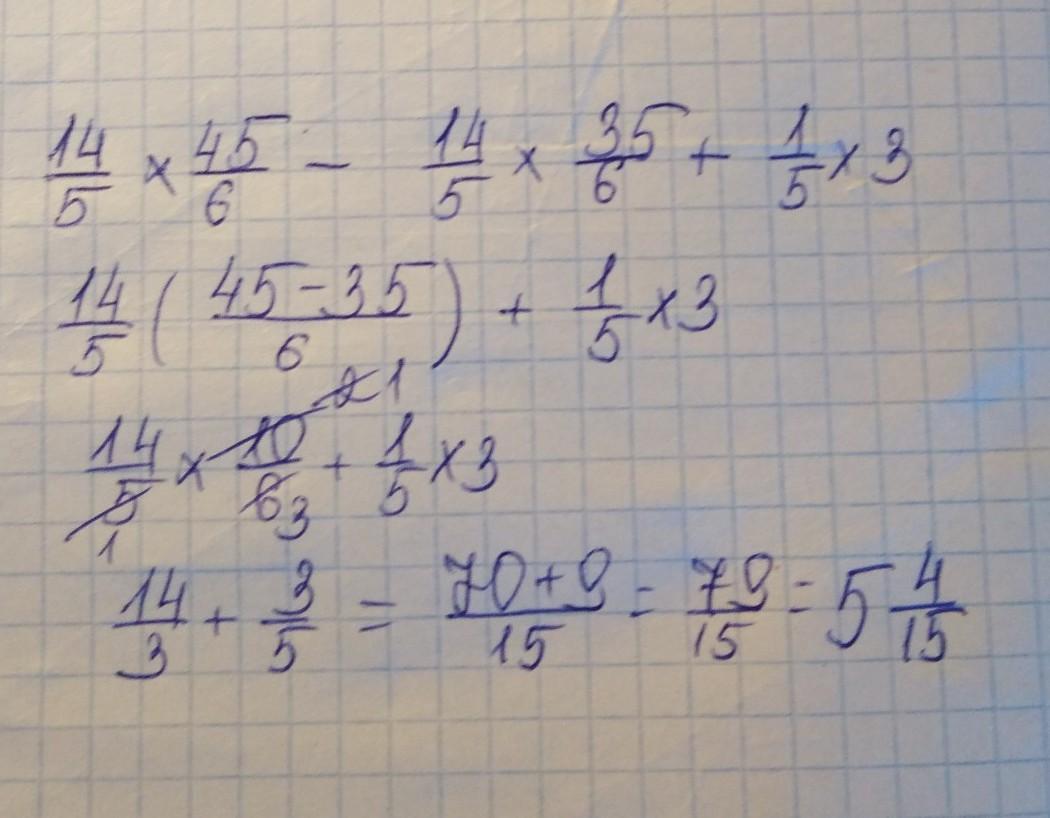 14/5 × 45/6 − 14/5 × 35/6 + 1/5 × 3
14/5 ( 45−35/6 ) + 1/5 × 3
14/5 1 × 10/6 2 1 3 + 1/5 × 3
14/3 + 3/5 = 70+9/15 = 79/15 = 5 4/15